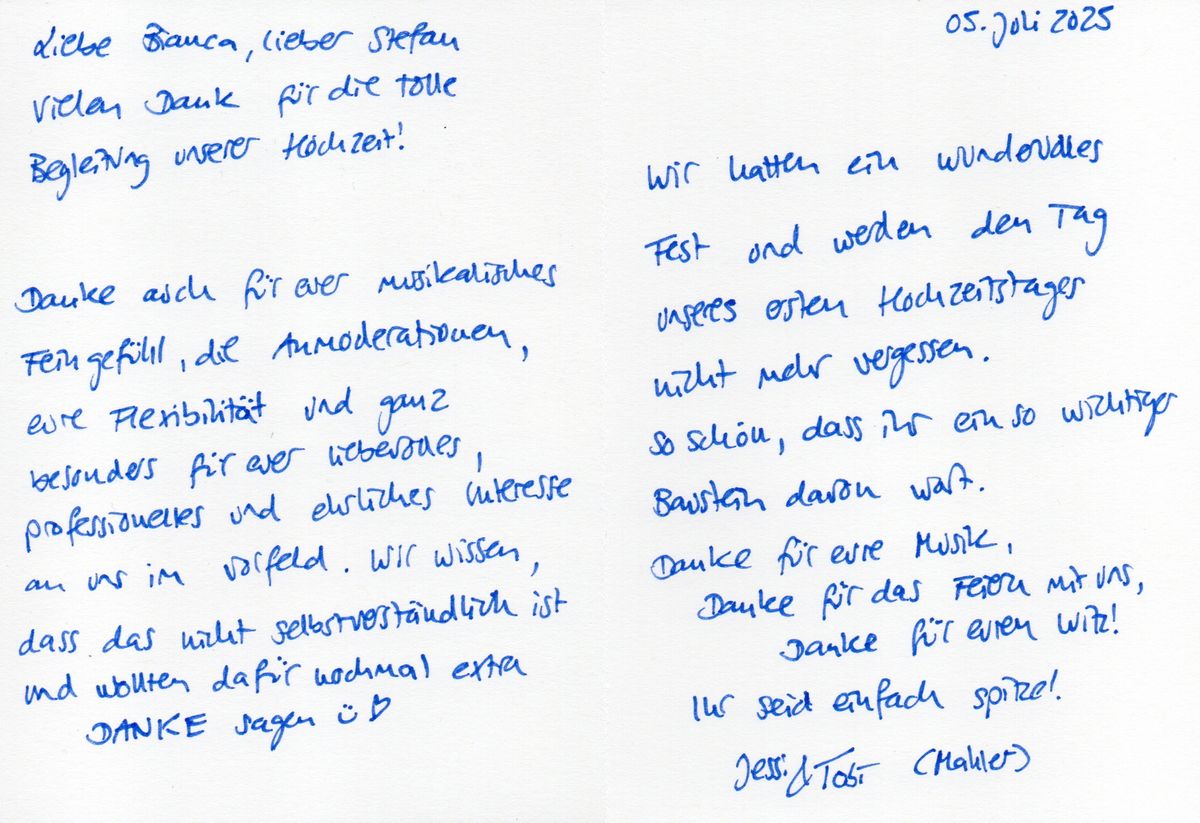 Liebe Bianca, lieber Stefan
vielen Dank für die tolle
Begleitung unserer Hochzeit!
Danke auch für euer musikalisches
Feingefühl, die Anmoderationen,
eure Flexibilität und ganz
besonders für euer liebevolles,
professionelles und ehrliches Interesse
an uns im Vorfeld. Wir wissen,
dass das nicht selbstverständlich ist
und wollten dafür nochmal extra
DANKE sagen ü♡
05. Juli 2025
Wir hatten ein wundervolles
Fest und werden den Tag
unseres ersten Hochzeitstages
nicht mehr vergessen.
So schön, dass ihr ein so wichtiger
Baustein davon wart.
Danke für eure Musik,
Danke für das Feiern mit uns,
Danke für euren Witz!
Ihr seid einfach spitze!
Jessi & Tobi (Mahler)